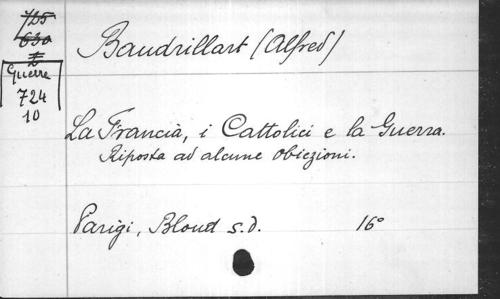 725
630
Guerre
724
10
Baudrillart (Alfred)
La Francia, i Cattolici e la Guerra.
Riposta ad alcune obiezioni.
Parigi, Bloud s.d. 16°